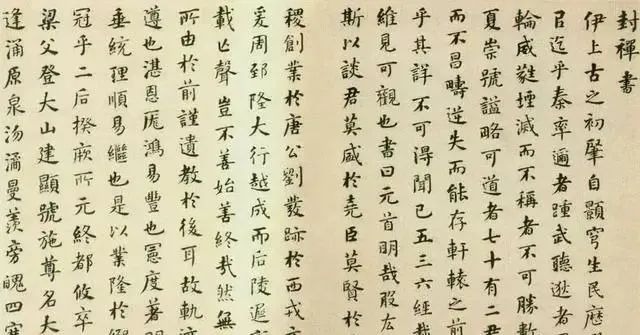 封禪書
伊上古之初肇自顥穹生民歷
㠯迄乎秦率邇者踵武聽逖者
輪威蕤堙滅而不稱者不可勝數
夏崇號謚略可道者七十有二君
而不昌疇逆失而能存軒轅之前
乎其詳不可得聞已五三六經載
維見可觀也書曰元首明哉股肱
斯以談君莫盛於堯臣莫賢於
稷創業於唐公劉發跡於西戎文
爰周郅隆大行越成而后陵遲
載亡聲豈不善始善終哉然無
所由於前謹遺教於後耳故軌迹
遵也湛恩厖鴻易豐也憲度著明
垂統理順易繼也是以業隆於繈
冠乎二后揆厥所元終都攸卒
梁父登大山建顯號施尊名大
逢涌原泉沕潏曼羨旁魄四塞